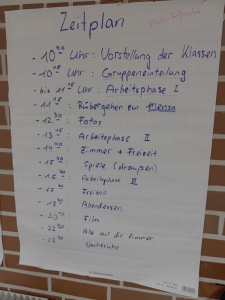 Zeitplan
- 10⁰⁰ Uhr: Vorstellung der Klassen
- 10¹⁵ Uhr: Gruppeneinteilung
- bis 11¹⁵ Uhr: Arbeitsphase I
- 11¹⁵: Rübergehen zur Mensa
- 12³⁰: Fotos
- 13: Arbeitsphase II
- 14: Zimmer + Freizeit
- 15: Spiele (draußen)
- 16: Arbeitsphase III
- 17: Freizeit
- 18: Abendessen
- 20: Film
- 22: Alle auf die Zimmer
- 22: Nachtruhe